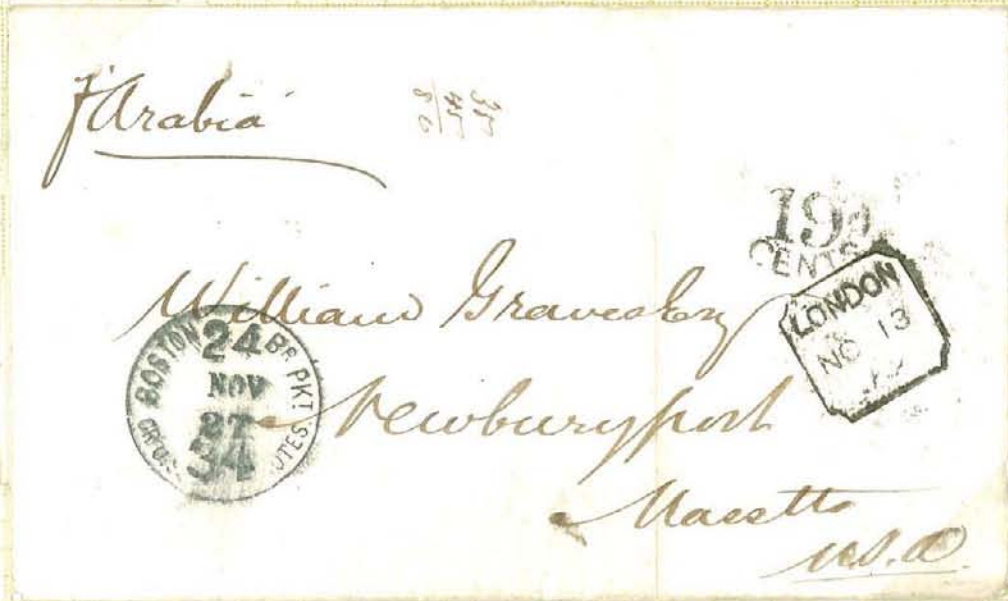 pr Arabia
35
45
80
19
CENTS
LONDON
NO 13
William Graves Esq
BOSTON BR. PKT
24
NOV
27
34
OR U.S. NOTES.
Newburyport
Massetts
U.S.A.